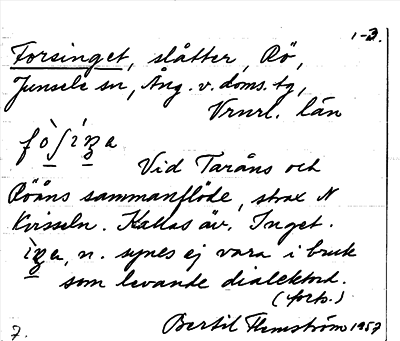 1-3.
Forsinget, slåtter, Rö,
Junsele sn, Ång. v. doms. tg,
Vrnrl. län
Vid Taråns och
Röåns sammanflöde, strax N
Kvisseln. Kallas äv. Inget.
n. synes ej vara i bruk
som levande dialektord.
(forts.)
Bertil Flemström 1957
7.